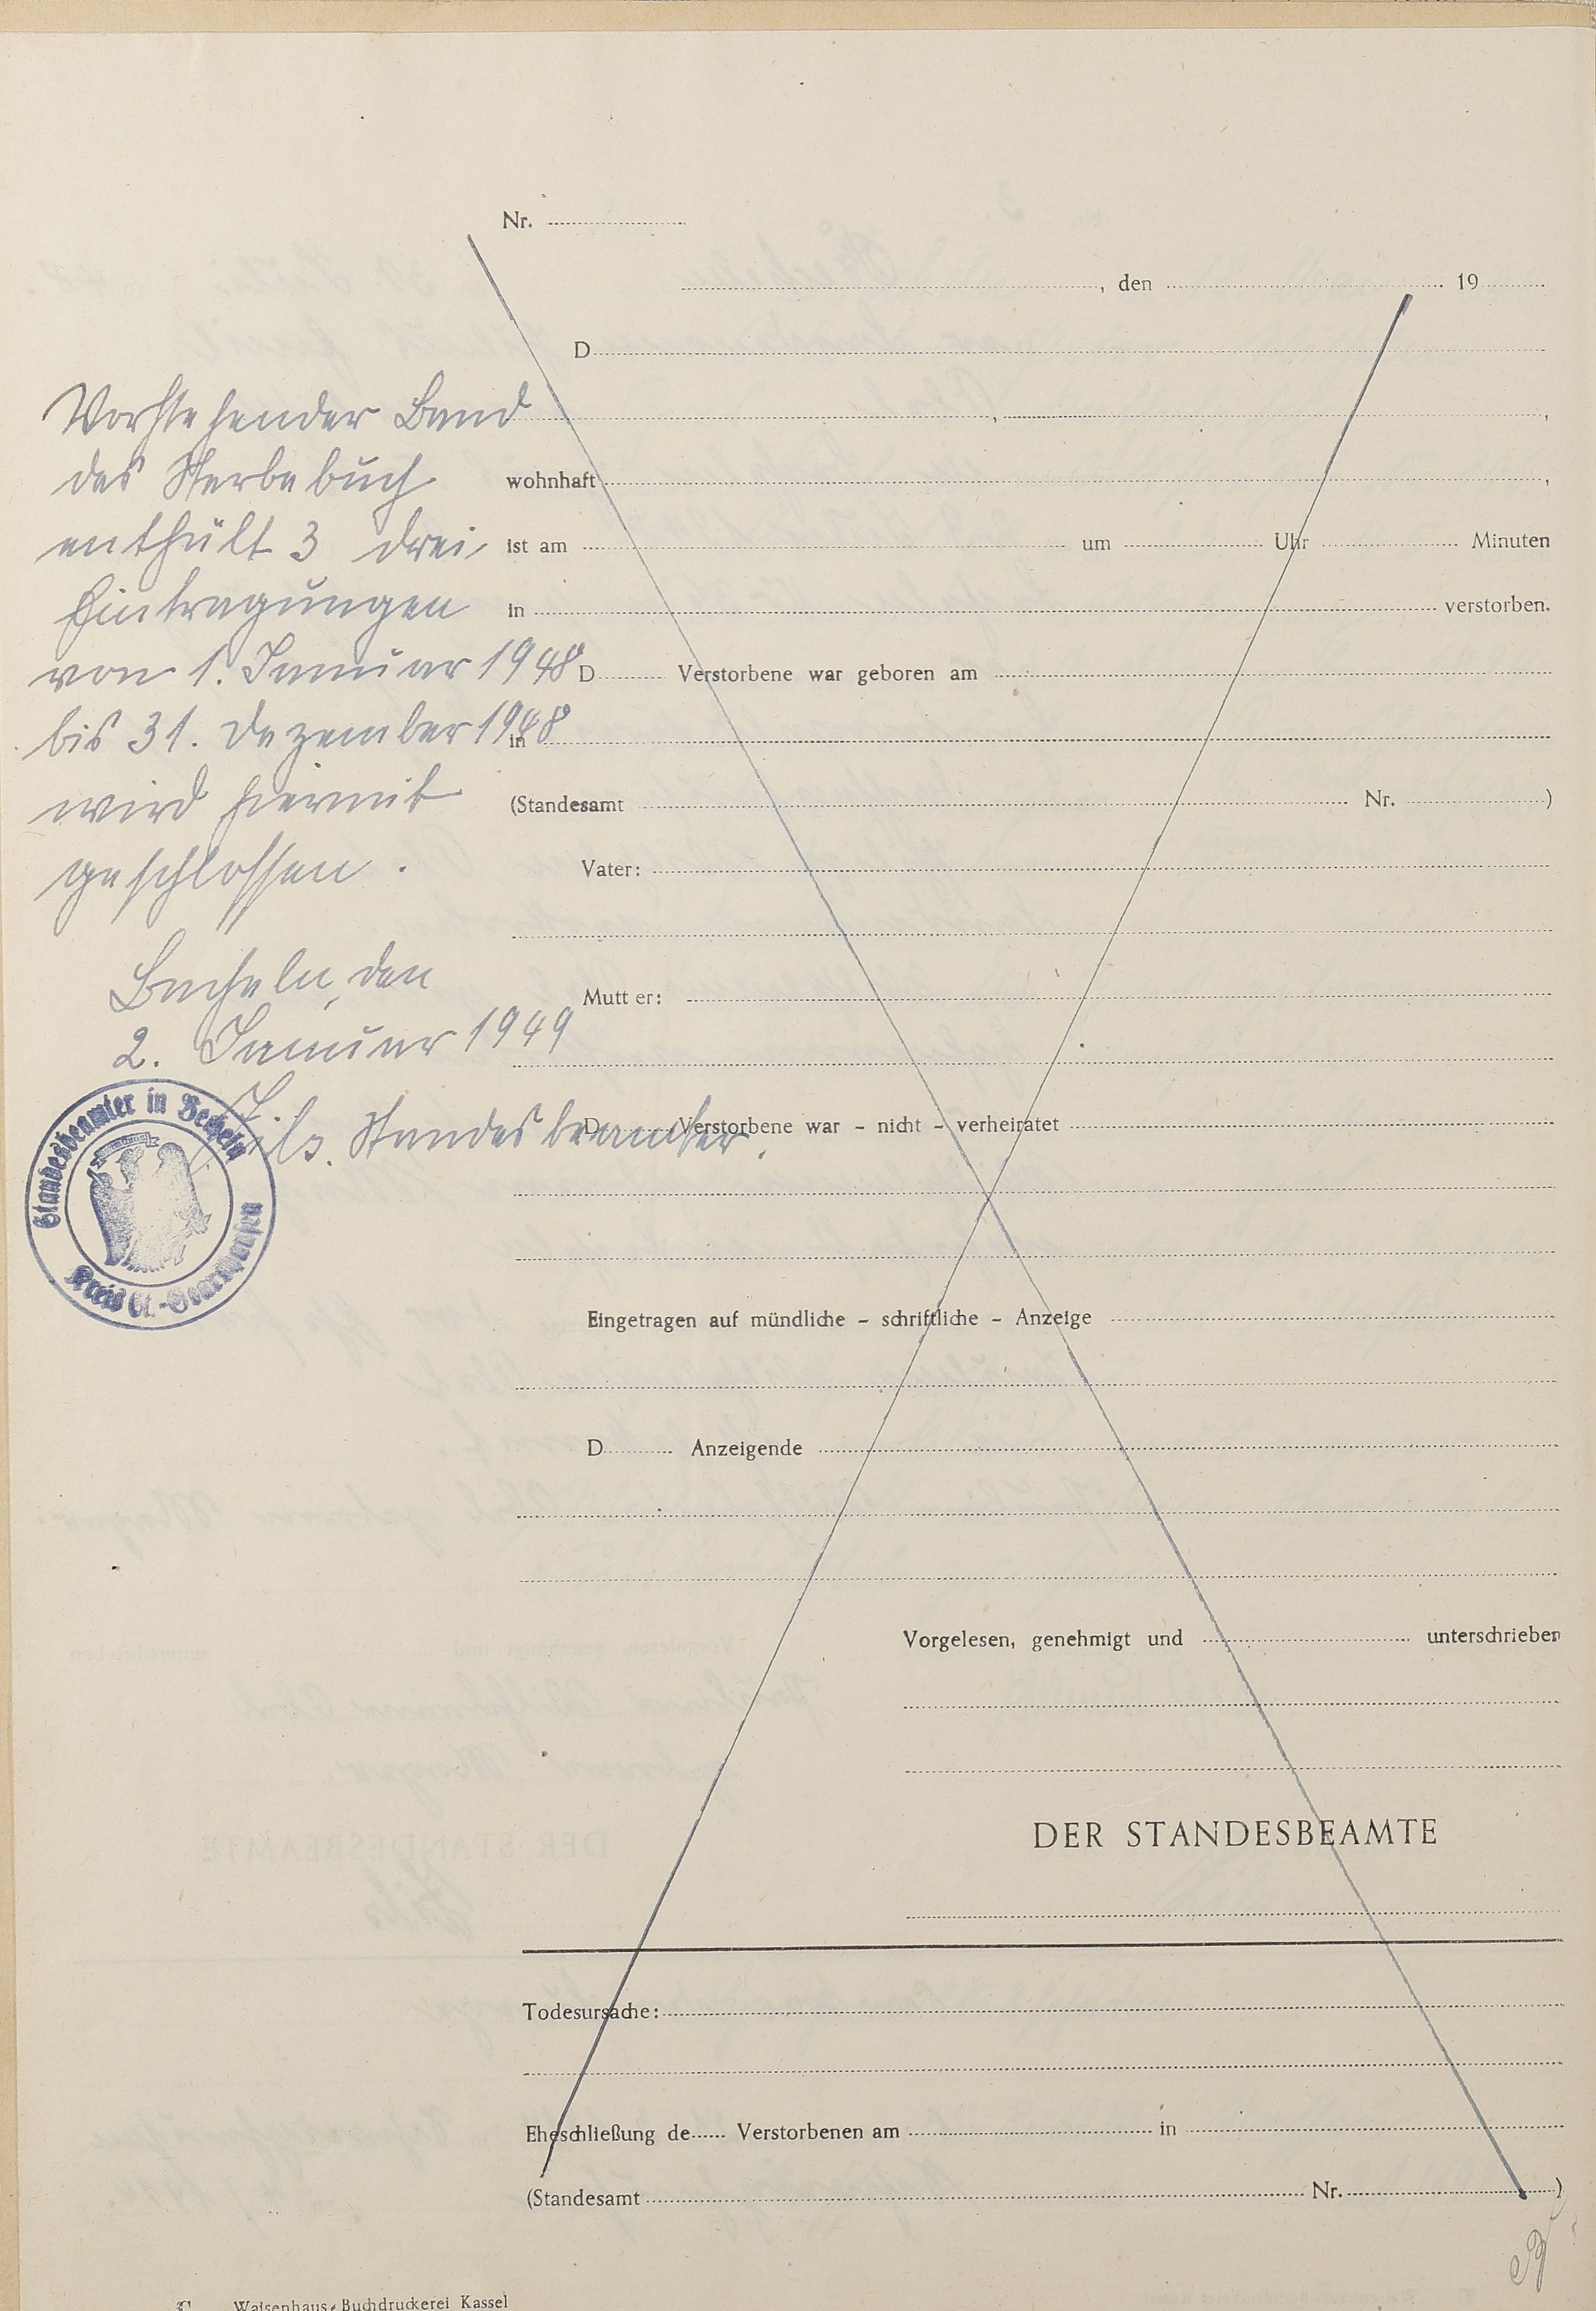 Nr.
, den 19
D
Vorstehender Band
, ,
des Sterbebuch
wohnhaft ,
enthält 3 drei
ist am um Uhr Minuten
Eintragungen
in verstorben.
von 1. Januar 1948
D Verstorbene war geboren am
bis 31. Dezember 1948
in
wird hiermit
(Standesamt Nr. )
geschlossen.
Vater:
Becheln, den
Mutter:
2. Januar 1949
Standesbeamter.
D Verstorbene war – nicht – verheiratet
Standesbeamter in Becheln
Kreis St.-Goarshausen
Eingetragen auf mündliche – schriftliche – Anzeige
D Anzeigende
Vorgelesen, genehmigt und unterschrieben
DER STANDESBEAMTE
Todesursache:
Eheschließung de Verstorbenen am in
(Standesamt Nr. )
C Waisenhaus-Buchdruckerei Kassel